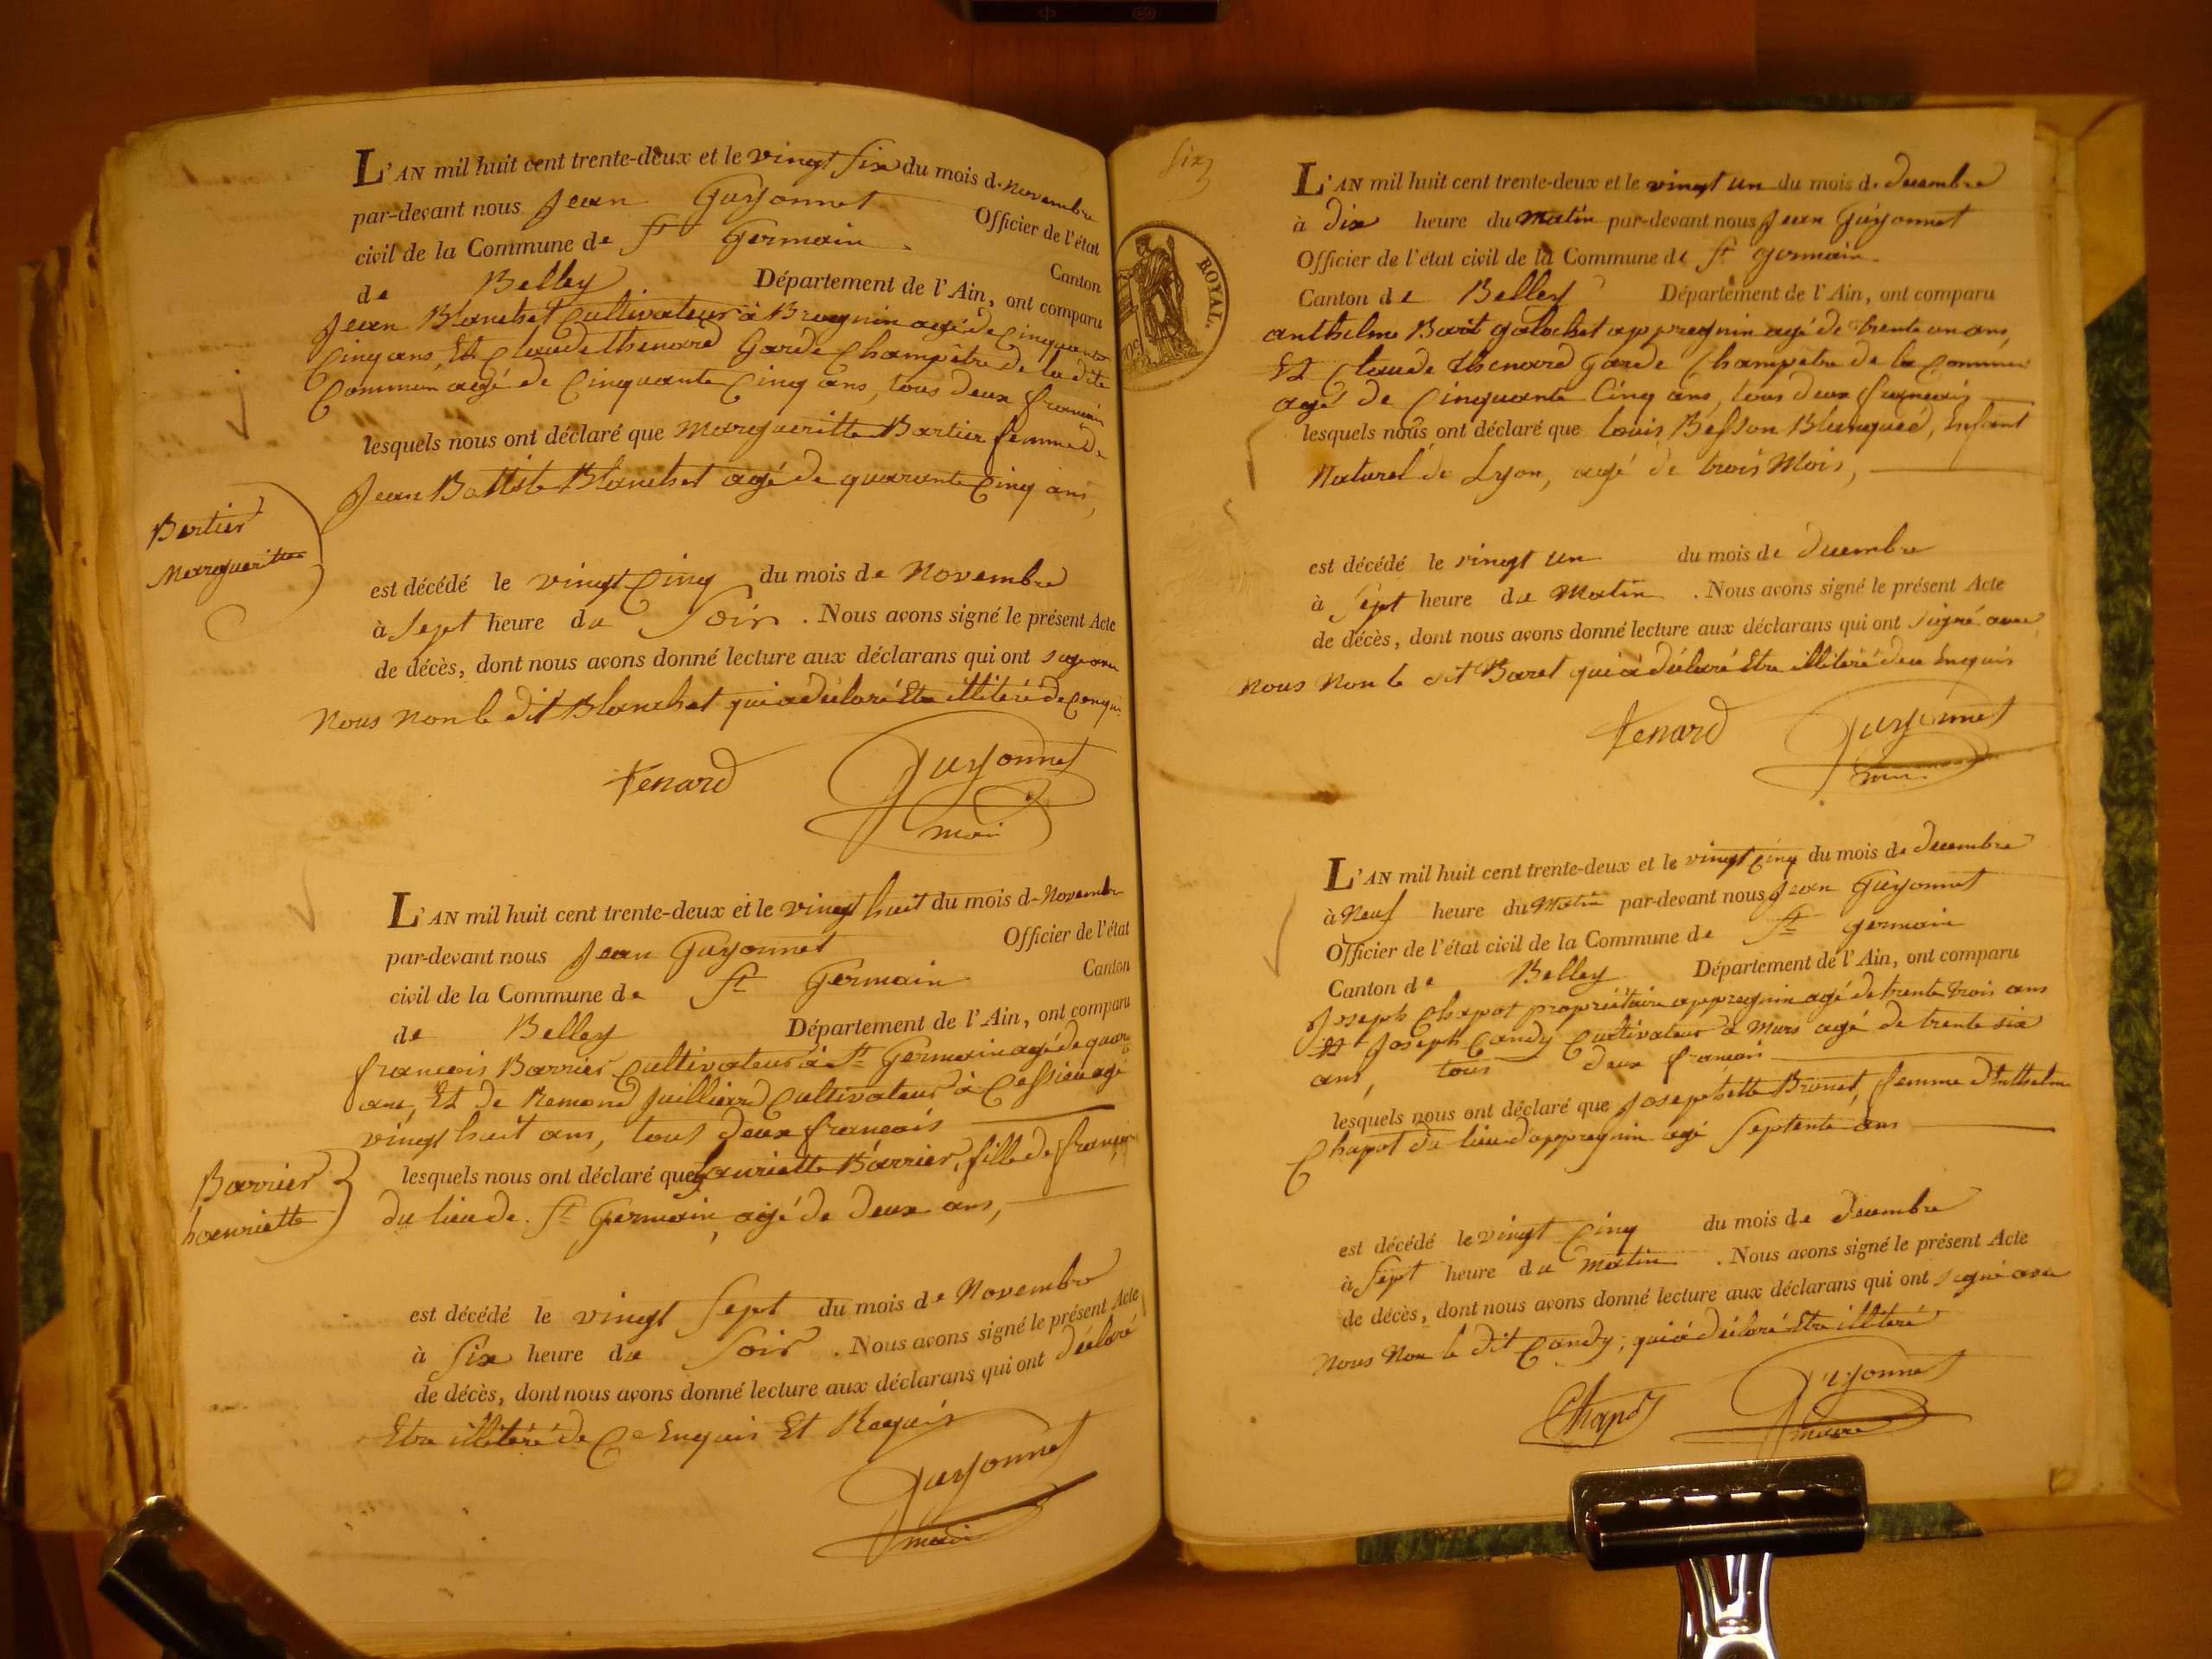 L'AN mil huit cent trente-deux et le vingt six du mois de novembre
par-devant nous Jean Guyonnet Officier de l'état
civil de la Commune de St Germain Canton
de Belley Département de l'Ain, ont comparu
Jean Blanchet Cultivateur à Brognin agé de Cinquante
Cinq ans, Et Claude thenard Garde Champêtre de la dite
Commun agé de Cinquante Cinq ans, tous deux francais
lesquels nous ont déclaré que Margueritte Bartier femme de
Jean Battiste Blanchet agé de quarante Cinq ans,
Bertier
Margueritte
est décédé le vingt Cinq du mois de Novembre
à Sept heure du Soir. Nous avons signé le présent Acte
de décès, dont nous avons donné lecture aux déclarans qui ont
Nous Non le dit Blanchet qui a déclaré Etre illitéré de
Tenard Guyonnet
mair
L'AN mil huit cent trente-deux et le vingt huit du mois de Novembre
par-devant nous Jean Guyonnet Officier de l'état
civil de la Commune de St Germain Canton
de Belley Département de l'Ain, ont comparu
francois Barrier Cultivateur à St Germain agé de quara
ans, Et de Remond Juilliard Cultivateur à Cessieu agé
vingt huit ans, tous deux francais
lesquels nous ont déclaré que hauriette Barrier, fille de françois
du lieu de St Germain, agé de deux ans,
Barrier
haenriette
est décédé le vingt Sept du mois de Novembre
à Six heure du Soir. Nous avons signé le présent Acte
de décès, dont nous avons donné lecture aux déclarans qui ont déclaré
Etre illitéré de Ce Enquis Et Requis
Guyonnet
maire
Six
ROYAL.
L'AN mil huit cent trente-deux et le vingt un du mois de decembre
à dix heure du Matin par-devant nous Jean Guyonnet
Officier de l'état civil de la Commune de St germain
Canton de Belley Département de l'Ain, ont comparu
anthelme galochet appregnin agé de trente un ans,
Et Claude thenard Garde Champetre de la Commune
agé de Cinquante Cinq ans, tous deux francais
lesquels nous ont déclaré que Louis Besson Blanqued, Enfant
Naturel de Lyon, agé de trois Mois,
est décédé le vingt un du mois de decembre
à Sept heure du Matin. Nous avons signé le présent Acte
de décès, dont nous avons donné lecture aux déclarans qui ont signé avec
Nous Non le dit Baret qui a déclaré Etre illitéré de ce Enquis
Tenard Guyonnet
maire
L'AN mil huit cent trente-deux et le vingt Cinq du mois de decembre
à Neuf heure du Matin par-devant nous Jean Guyonnet
Officier de l'état civil de la Commune de St germain
Canton de Belley Département de l'Ain, ont comparu
Joseph Chapot propriétaire appregnin agé de trente trois ans
Et Joseph Candy Cultivateur à Murs agé de trente six
ans, tous deux francais
lesquels nous ont déclaré que Josephette Brunet, femme d'Anthelme
Chapot du lieu d'appregnin agé Septente ans
est décédé le vingt Cinq du mois de decembre
à Sept heure du Matin. Nous avons signé le présent Acte
de décès, dont nous avons donné lecture aux déclarans qui ont signé avec
Nous Non le dit Candy, qui a déclaré Etre illitéré
Chapot Guyonnet
maire